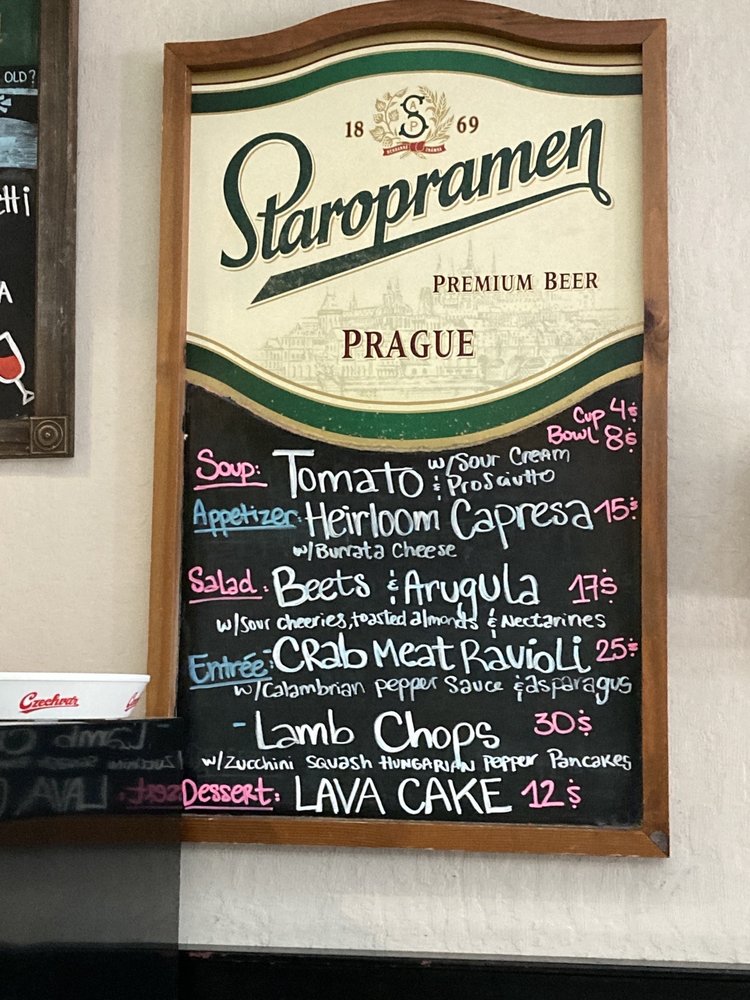 OLD?
etti
A
18 SAP 69
Staropramen
PREMIUM BEER
PRAGUE
Cup 4$
Bowl 8$
Soup: Tomato w/Sour Cream
& Prosciutto
Appetizer: Heirloom Capresa 15$
w/Burrata Cheese
Salad: Beets & Arugula 17$
w/sour cheeries, toasted almonds & Nectarines
Entrée: -CRab Meat Ravioli 25$
w/Calambrian pepper Sauce & asparagus
-Lamb Chops 30$
w/Zucchini Squash HUNGARIAN Pepper Pancakes
Dessert: LAVA CAKE 12$
Czechvar